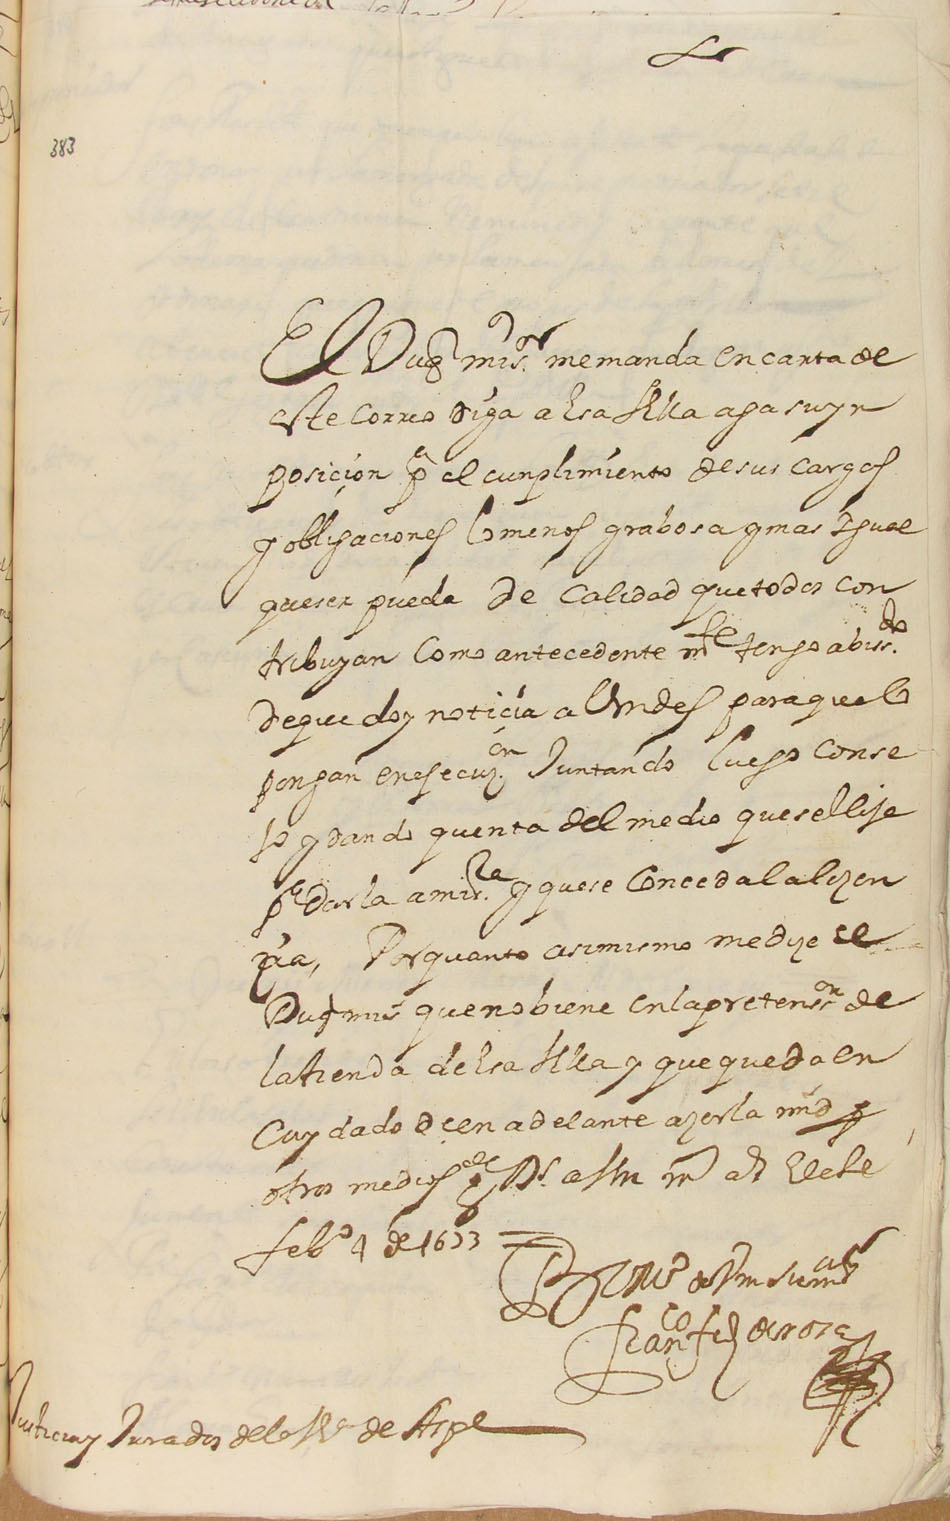 383
El Duq mi s.or me manda en carta de
este correo diga a esa Villa aga su ym
posicion p.a el cunplimiento de sus cargos
y obligaciones lo menos grabosa y mas igual
que ser pueda de calidad que todos con
tribuyan como antecedente m.te tengo abis.do
de que doy noticia a Vmdes para que lo
pongan en esecuz.on Juntando luego conse
jo y dando quenta del medio que se ellije
p.a darla a mi s.ra y que se conceda la lizen
zia, Por quanto asimismo me dize el
Duq mi s.r que no biene en la pretens.on de
la tienda de esa Villa y que queda en
cuydado de en adelante azerla mrd p
otros medios g.de Ds. a Vm m a.s Elche
feb.o 4 de 1673
BLM de Vm su m.or
Fran.co fez de roza
Justicia y Jurados de la V.a de Aspe